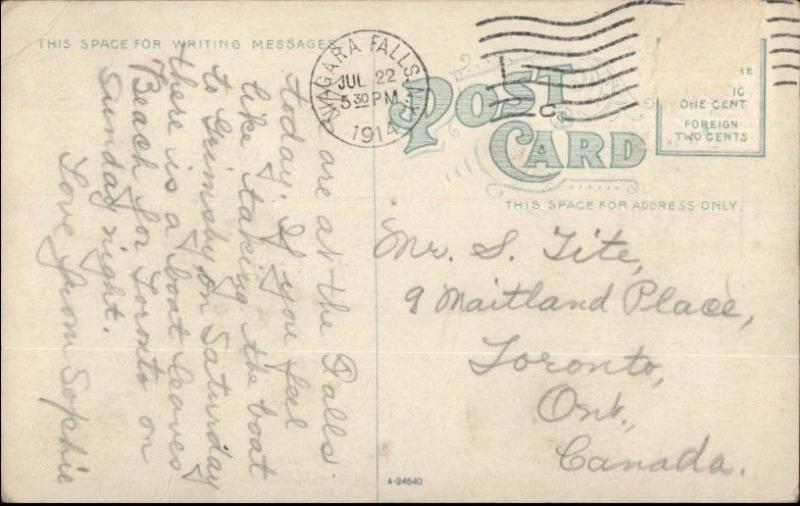 THIS SPACE FOR WRITING MESSAGES
NIAGARA FALLS, N.Y.
JUL 22
5 30 PM
1914
POST
CARD
ONE CENT
FOREIGN
TWO CENTS
THIS SPACE FOR ADDRESS ONLY.
are at the Falls
today. If you feel
like taking the boat
to Grimsby on Saturday
there is a boat leaves
Beach for Toronto on
Sunday night.
Love from Sophie
Mr. S. Tite,
9 Maitland Place,
Toronto,
Ont.,
Canada.
A-24640